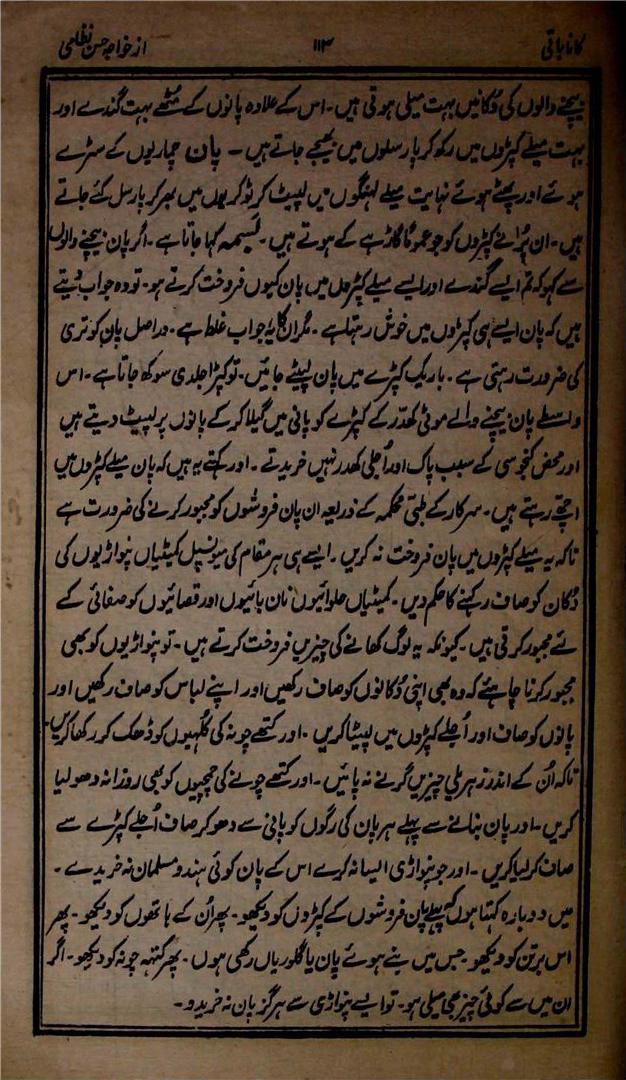 کانا باتی ۱۱۳ از خواجہ حسن نظامی
بیچنے والوں کی دُکانیں بہت میلی ہوتی ہیں۔ اس کے علاوہ پانوں کے مٹھے بہت گندے اور
بہت میلے کپڑوں میں رکھ کر پارسلوں میں بھیجے جاتے ہیں ۔ پان چماریوں کے سڑے
ہوئے اور پھٹے ہوئے نہایت میلے لہنگوں میں لپیٹ کر ٹوکریوں میں بھر کر پارسل کئے جاتے
ہیں۔ ان پُرانے کپڑوں کو جو عموماً گاڑھے کے ہوتے ہیں۔ کہا جاتا ہے۔ اگر پان بیچنے والوں
سے کہو کہ تم ایسے گندے اور ایسے میلے کپڑوں میں پان کیوں فروخت کرتے ہو۔ تو وہ جواب دیتے
ہیں کہ پان ایسے ہی کپڑوں میں خوش رہتا ہے۔ مگر ان کا یہ جواب غلط ہے۔ دراصل پان کو تری
کی ضرورت رہتی ہے۔ باریک کپڑے میں پان لپیٹے جائیں۔ تو کپڑا جلدی سوکھ جاتا ہے۔ اس
واسطے پان بیچنے والے موٹی کھدّر کے کپڑے کو پانی میں گیلا کر کے پانوں پر لپیٹ دیتے ہیں
اور محض کنجوسی کے سبب پاک اور اُجلی کھدر نہیں خریدتے ۔ اور کہتے یہ ہیں کہ پان میلے کپڑوں میں
اچھے رہتے ہیں۔ سرکار کے طبّی محکمہ کے ذریعہ ان پان فروشوں کو مجبور کرنے کی ضرورت ہے
تاکہ یہ میلے کپڑوں میں پان فروخت نہ کریں۔ ایسے ہی ہر مقام کی میونسپل کمیٹیاں پنواڑیوں کی
دُکان کو صاف رکھنے کا حکم دیں۔ کمیٹیاں حلوائیوں نان بائیوں اور قصائیوں کو صفائی کے
لئے مجبور کرتی ہیں۔ کیونکہ یہ لوگ کھانے کی چیزیں فروخت کرتے ہیں۔ تو پنواڑیوں کو بھی
مجبور کرنا چاہئے کہ وہ بھی اپنی دُکانوں کو صاف رکھیں اور اپنے لباس کو صاف رکھیں اور
پانوں کو صاف اور اُجلے کپڑوں میں لپیٹا کریں۔ اور کتھے چونہ کی کُلہیوں کو ڈھک کر رکھا کریں۔
تاکہ اُن کے اندر زہریلی چیزیں گرنے نہ پائیں۔ اور کتھے چونے کی چمچیوں کو بھی روزانہ دھو لیا
کریں۔ اور پان بنانے سے پہلے ہر پان کی رگوں کو پانی سے دھو کر صاف اُجلے کپڑے سے
صاف کر لیا کریں۔ اور جو پنواڑی ایسا نہ کرے اس کے پان کوئی ہندو مسلمان نہ خریدے۔
میں دوبارہ کہتا ہوں کہ پہلے پان فروشوں کے کپڑوں کو دیکھو۔ پھر اُن کے ہاتھوں کو دیکھو۔ پھر
اس برتن کو دیکھو۔ جس میں بنے ہوئے پان یا گلوریاں رکھی ہوں۔ پھر کتھہ چونہ کو دیکھو۔ اگر
ان میں سے کوئی چیز بھی میلی ہو۔ تو ایسے پنواڑی سے ہرگز پان نہ خریدو۔